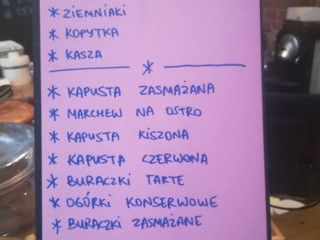 * ZIEMNIAKI
* KOPYTKA
* KASZA
*
* KAPUSTA ZASMAŻANA
* MARCHEW NA OSTRO
* KAPUSTA KISZONA
* KAPUSTA CZERWONA
* BURACZKI TARTE
* OGÓRKI KONSERWOWE
* BURACZKI ZASMAŻANE